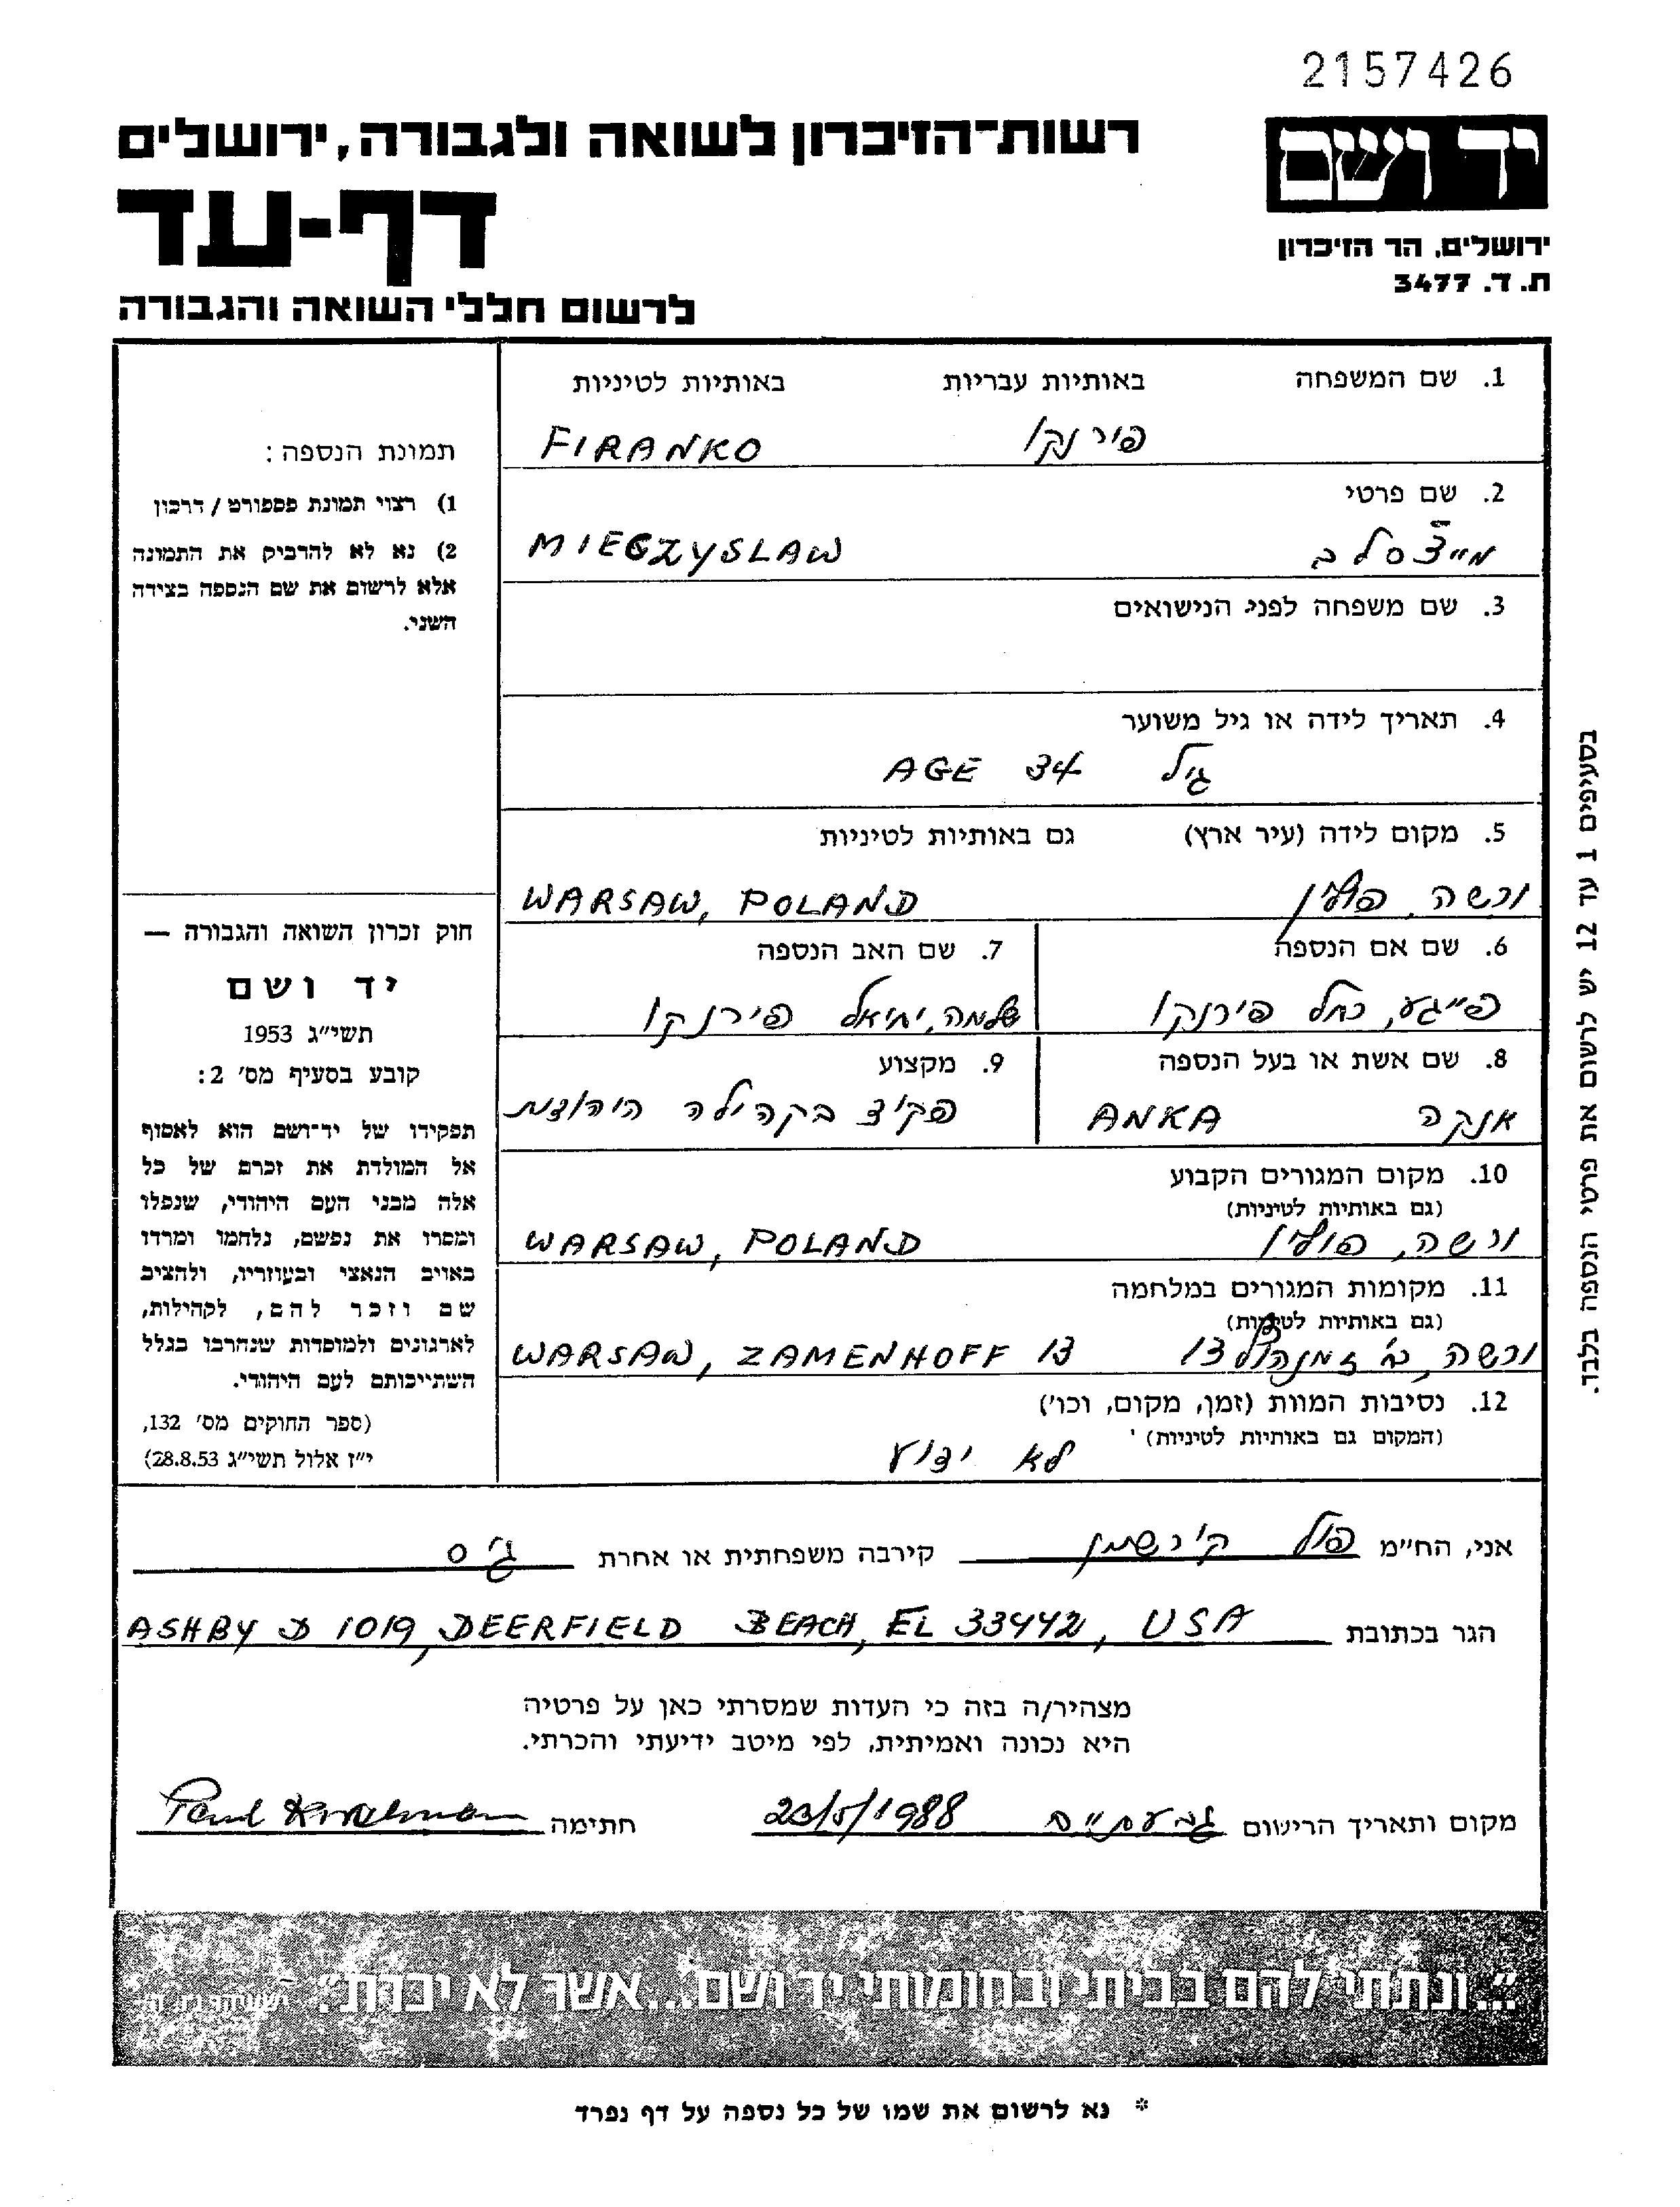 2157426
רשות־הזיכרון לשואה ולגבורה, ירושלים
יד ושם
דף-עד
ירושלים, הר הזיכרון
ת. ד. 3477
לרשום חללי השואה והגבורה
1. שם המשפחה באותיות עבריות באותיות לטיניות
פירנקו FIRANKO
2. שם פרטי
מייצ'סלב MIEGZYSLAW
3. שם משפחה לפני הנישואים
4. תאריך לידה או גיל משוער
גיל 34 AGE
5. מקום לידה (עיר ארץ) גם באותיות לטיניות
ורשה, פולין WARSAW, POLAND
6. שם אם הנספה 7. שם האב הנספה
פייגע, רחל פירנקו שלמה, יחיאל פירנקו
8. שם אשת או בעל הנספה 9. מקצוע
אנקה ANKA פקיד בקהילה היהודית
10. מקום המגורים הקבוע
(גם באותיות לטיניות)
ורשה, פולין WARSAW, POLAND
11. מקומות המגורים במלחמה
(גם באותיות לטיניות)
ורשה, רח' זמנהוף 13 WARSAW, ZAMENHOFF 13
12. נסיבות המוות (זמן, מקום, וכו')
(המקום גם באותיות לטיניות)
לא ידוע
תמונת הנספה:
1) רצוי תמונת פספורט / דרכון
2) נא לא להדביק את התמונה
אלא לרשום את שם הנספה בצידה
השני.
חוק זכרון השואה והגבורה —
יד ושם
תשי"ג 1953
קובע בסעיף מס' 2:
תפקידו של יד־ושם הוא לאסוף
אל המולדת את זכרם של כל
אלה מבני העם היהודי, שנפלו
ומסרו את נפשם, נלחמו ומרדו
באויב הנאצי ובעוזריו, ולהציב
שם וזכר להם, לקהילות,
לארגונים ולמוסדות שנחרבו בגלל
השתייכותם לעם היהודי.
(ספר החוקים מס' 132,
י"ז אלול תשי"ג 28.8.53)
בסעיפים 1 עד 12 יש לרשום את פרטי הנספה בלבד.
אני, הח"מ פול קירשמן קירבה משפחתית או אחרת גיס
הגר בכתובת ASHBY D 1019, DEERFIELD BEACH, FL 33442, USA
מצהיר/ה בזה כי העדות שמסרתי כאן על פרטיה
היא נכונה ואמיתית, לפי מיטב ידיעתי והכרתי.
מקום ותאריך הרישום גבעתיים 23/5/1988 חתימה Paul Kirshman
"...ונתתי להם בביתי ובחומותי יד ושם...אשר לא יכרת". ישעיהו נו, ה'
* נא לרשום את שמו של כל נספה על דף נפרד